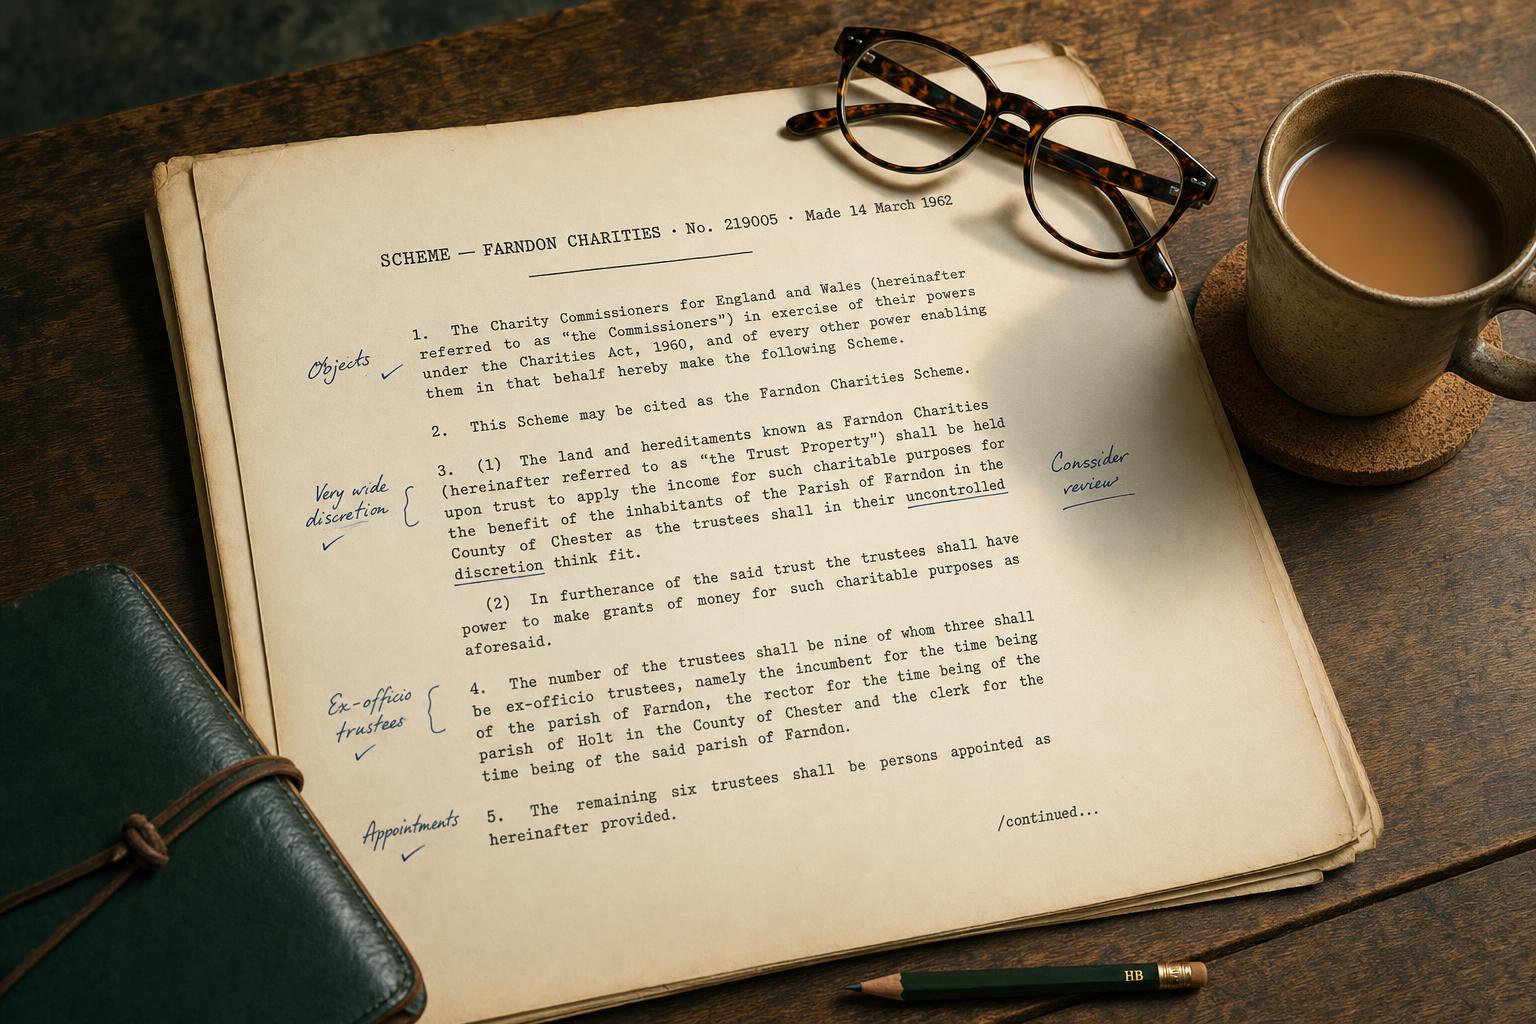 SCHEME — FARNDON CHARITIES · No. 219005 · Made 14 March 1962
1. The Charity Commissioners for England and Wales (hereinafter
referred to as “the Commissioners”) in exercise of their powers
under the Charities Act, 1960, and of every other power enabling
them in that behalf hereby make the following Scheme.
Objects ✓
2. This Scheme may be cited as the Farndon Charities Scheme.
3. (1) The land and hereditaments known as Farndon Charities
(hereinafter referred to as “the Trust Property”) shall be held
upon trust to apply the income for such charitable purposes for
the benefit of the inhabitants of the Parish of Farndon in the
County of Chester as the trustees shall in their uncontrolled
discretion think fit.
Very wide
discretion
✓
Conssider
review
(2) In furtherance of the said trust the trustees shall have
power to make grants of money for such charitable purposes as
aforesaid.
4. The number of the trustees shall be nine of whom three shall
be ex-officio trustees, namely the incumbent for the time being
of the parish of Farndon, the rector for the time being of the
parish of Holt in the County of Chester and the clerk for the
time being of the said parish of Farndon.
Ex-officio
trustees
✓
5. The remaining six trustees shall be persons appointed as
hereinafter provided.
Appointments
✓
/continued...
HB